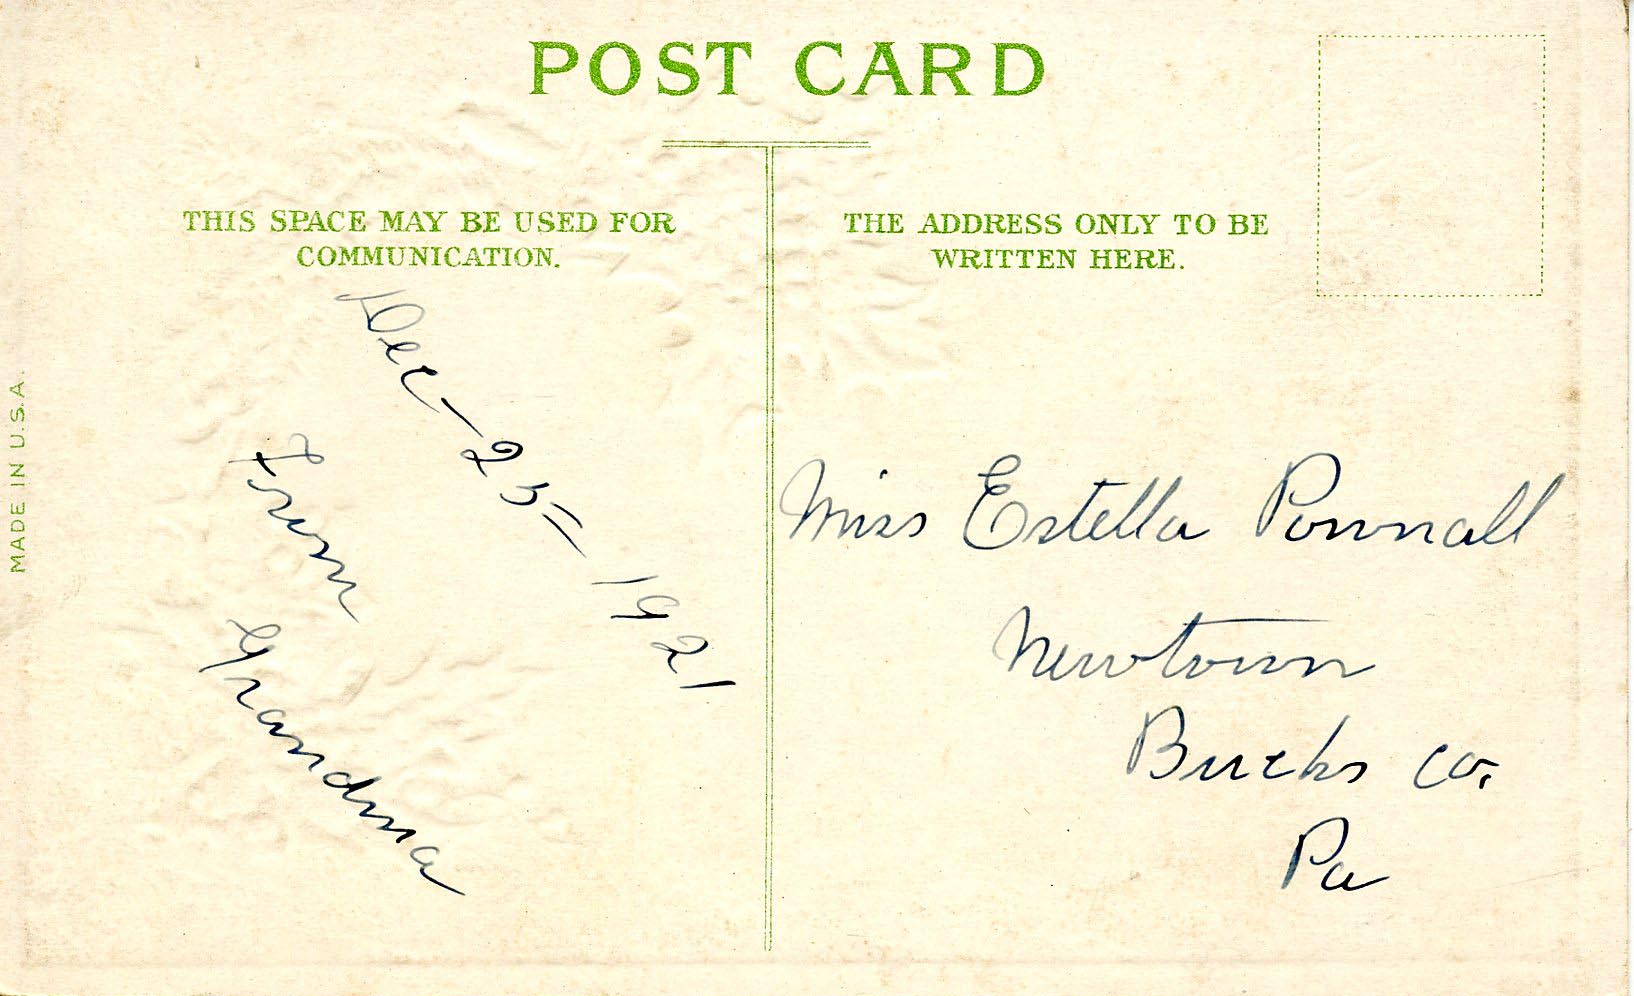 POST CARD
THIS SPACE MAY BE USED FOR
COMMUNICATION.
THE ADDRESS ONLY TO BE
WRITTEN HERE.
MADE IN U.S.A.
Dec - 25 = 1921
From
Grandma
Miss Estella Pownall
Newtown
Bucks Co.
Pa